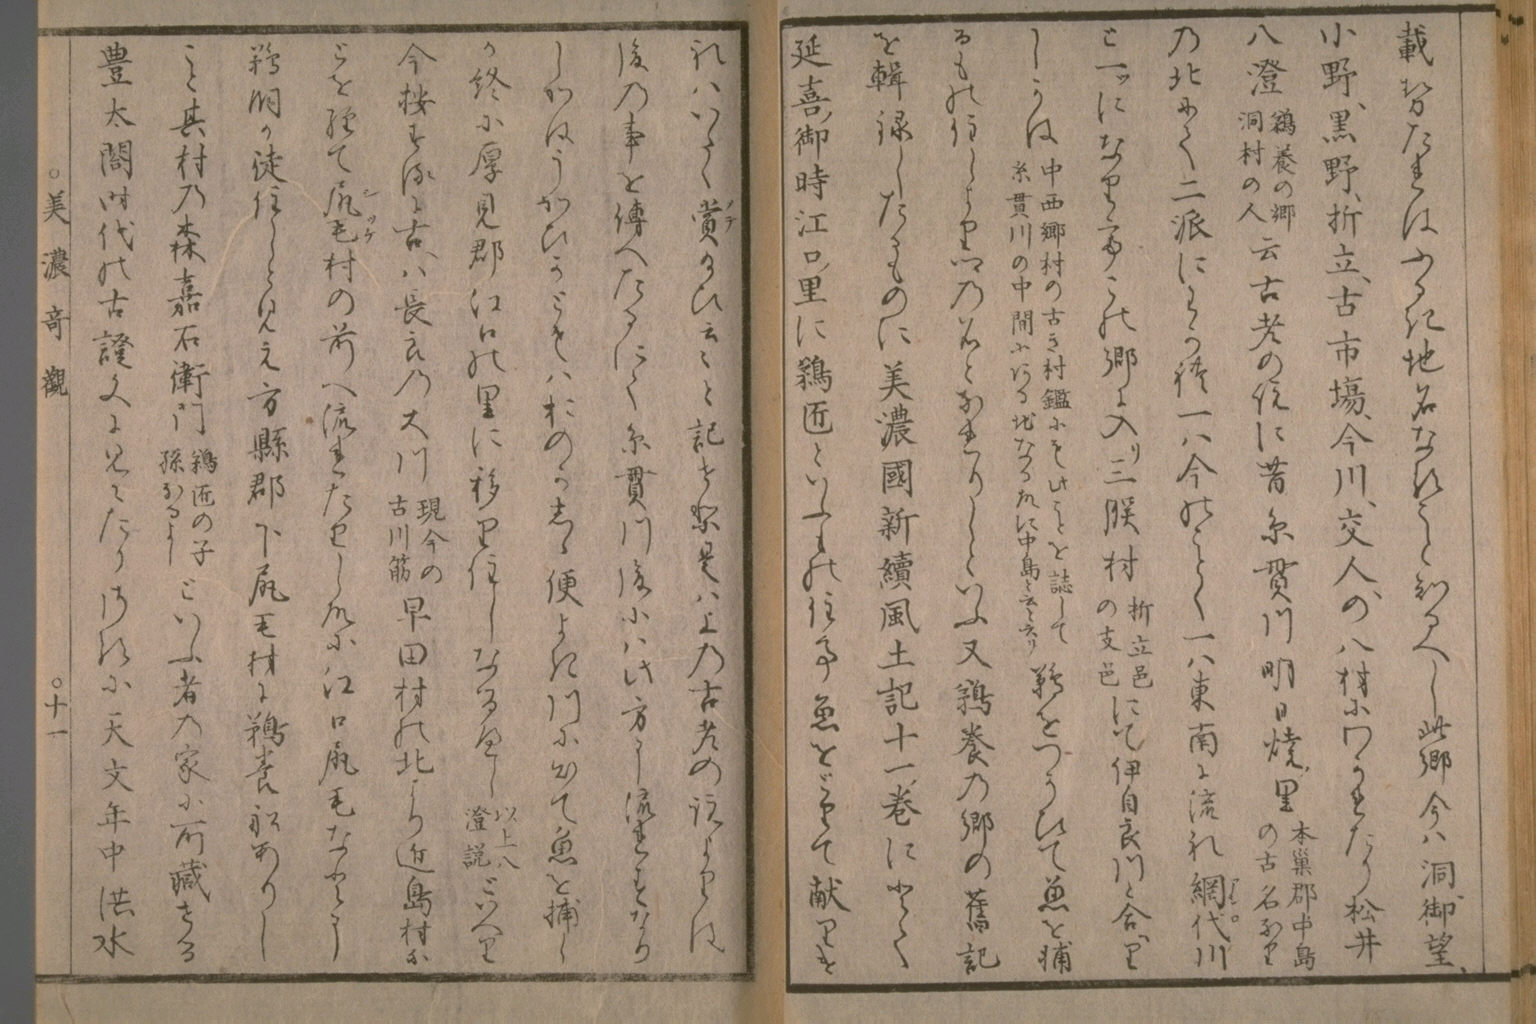 載おかたれはふるき地名なること知るへし此郷今ハ洞、御望、
小野、黒野、折立、古市場、今川、交人、の八村にわかれたり松井
八澄鵜養の郷洞村の人云古老の伝に昔糸貫川明日焼里本巣郡中島の古名なり
乃北にて二派にわかれ一ハ今のことく一ハ東南に流れ網代川
と一ツになりて此郷に入り三股村折立邑の支邑にて伊自良川と合り
しかは中西郷村の古き村鑑にそのことを誌して糸貫川の中間にある地なる故に中島と云と云り鵜をつかひて魚を捕
るもの住しより此乃名となれりしといふ又鵜養乃郷の旧記
を輯録したるものに美濃國新續風土記十一巻にとく
延喜御時江口里に鵜匠といふもの住て魚をとりて献りき
れハいたく賞給ひ云々と記せり是ハ上乃古老の説よりは
後乃事を傳へたるにて糸貫川後にハ此方に流れすなり
しかはうかひのともハおのつから便よき川に出て魚を捕し
か終に厚見郡江口の里に移り住しなるへし以上八澄説といへり
今按するに古ハ長良乃大川現今の古川筋早田村の北より近島村に
とを経て尻毛村の前へ流れたりし故に江口尻毛なとに
鵜飼の徒住しと見え方縣郡下尻毛村に鵜養初ありし
こと其村乃森嘉右衛門鵜匠の子孫なるよしといふ者乃家に所蔵せる
豊太閤時代の古證文に見えたり然るに天文年中洪水
美濃奇觀
十一